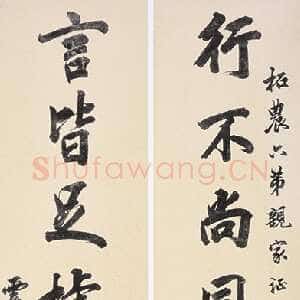 柘農六弟親家正
行不尚同
言皆足
Shufawang.CN